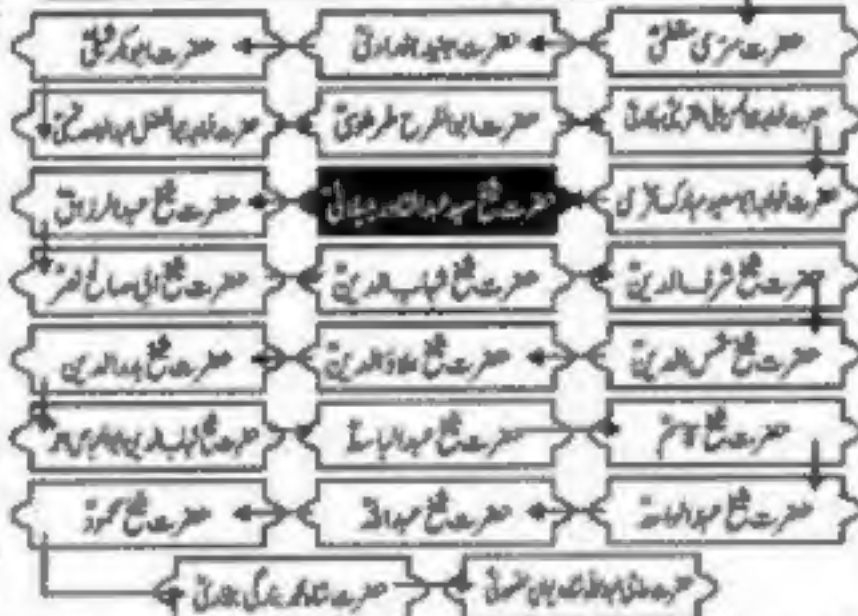 حضرت سری سقطیؒ حضرت جنید بغدادیؒ حضرت ابوبکر شبلیؒ
حضرت خواجہ ابوالحسن علی حضرت ابو الفرح طرطوسیؒ حضرت خواجہ ابوالفضل عبدالواحد
حضرت خواجہ ابو سعید مبارک حضرت شیخ سید عبدالقادر جیلانیؒ حضرت شیخ عبدالرزاقؒ
حضرت شیخ شرف الدینؒ حضرت شیخ شہاب الدینؒ حضرت شیخ ابی صالح نصرؒ
حضرت شیخ شمس الدینؒ حضرت شیخ علاؤ الدینؒ حضرت شیخ بدرالدینؒ
حضرت شیخ قاسمؒ حضرت شیخ عبدالباسطؒ حضرت شیخ شہاب الدین
حضرت شیخ حضرت شیخ عبداللہؒ حضرت شیخ محمودؒ
حضرت حضرت